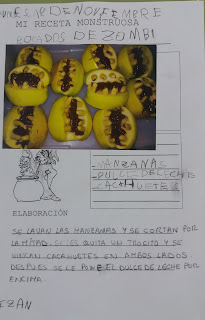 18 DE NOVIEMBRE
MI RECETA MONSTRUOSA
BOCADOS DE ZOMBI
MANZANAS
DULCE DE LECHE
CACAHUETES
ELABORACIÓN
SE LAVAN LAS MANZANAS Y SE CORTAN POR
LA MITAD. SE LES QUITA UN TROCITO Y SE
HINCAN CACAHUETES EN AMBOS LADOS.
DESPUES SE LE PONE EL DULCE DE LECHE POR
ENCIMA.
IZAN